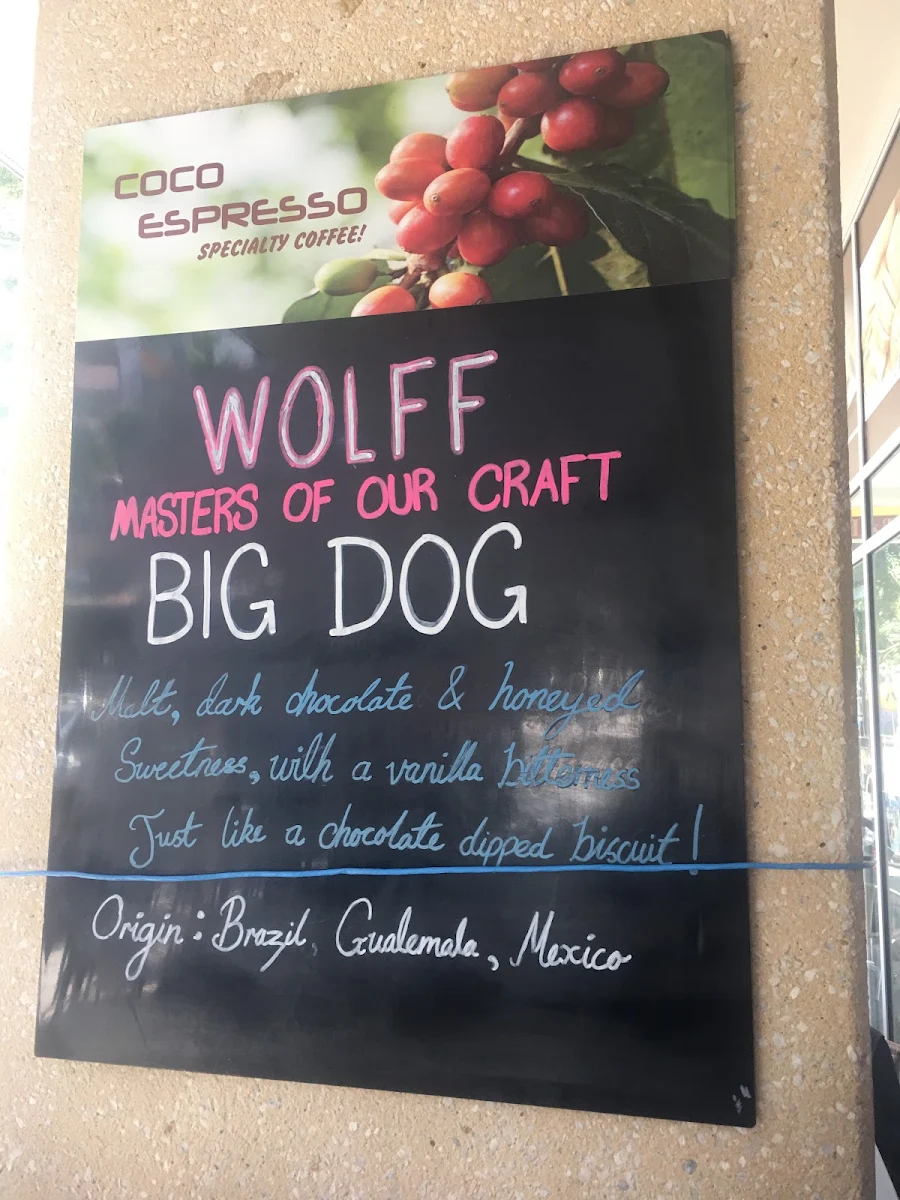 COCO
ESPRESSO
SPECIALTY COFFEE!
WOLFF
MASTERS OF OUR CRAFT
BIG DOG
Malt, dark chocolate & honeyed
Sweetness, with a vanilla bitterness
Just like a chocolate dipped biscuit!
Origin: Brazil, Guatemala, Mexico